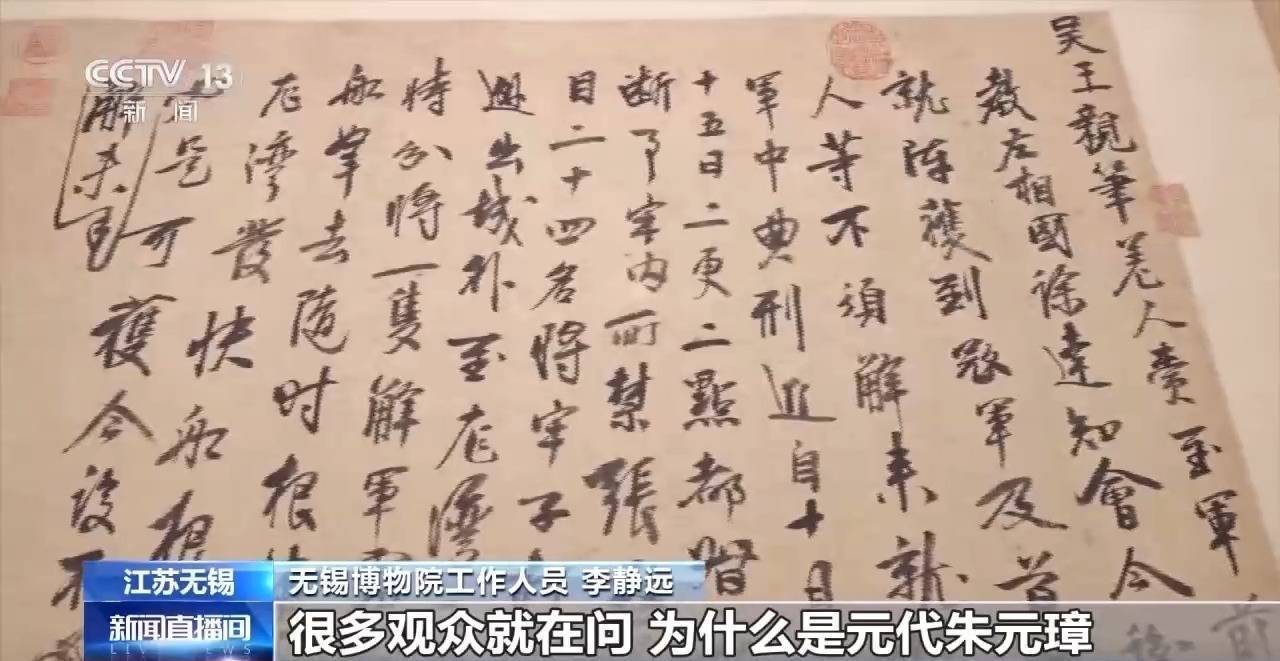 CCTV 13
新闻
吴王親筆差人賫至軍前
教左相國徐達知會今後
就陣獲到寇軍及首
人等不須解来就
軍中典刑進自十月
十五日二更二點都督
断事牢内所禁張
目二十四名將牢子
出城外至龙灣
時分將一隻解軍
船牽去随时根
龙灣發快船根
是可獲今設不
解来
江苏无锡
无锡博物院工作人员 李静远
新闻直播间
LIVE NEWS
很多观众就在问 为什么是元代朱元璋